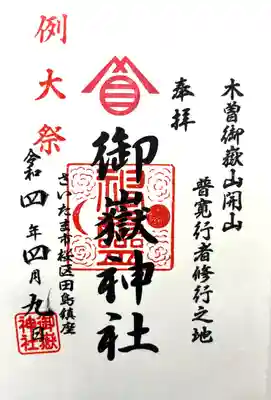 木曽御嶽山開山
普寛行者修行之地
奉拝
御嶽神社
さいたま市桜区田島鎮座
例大祭
令和四年四月九日
御嶽
神社